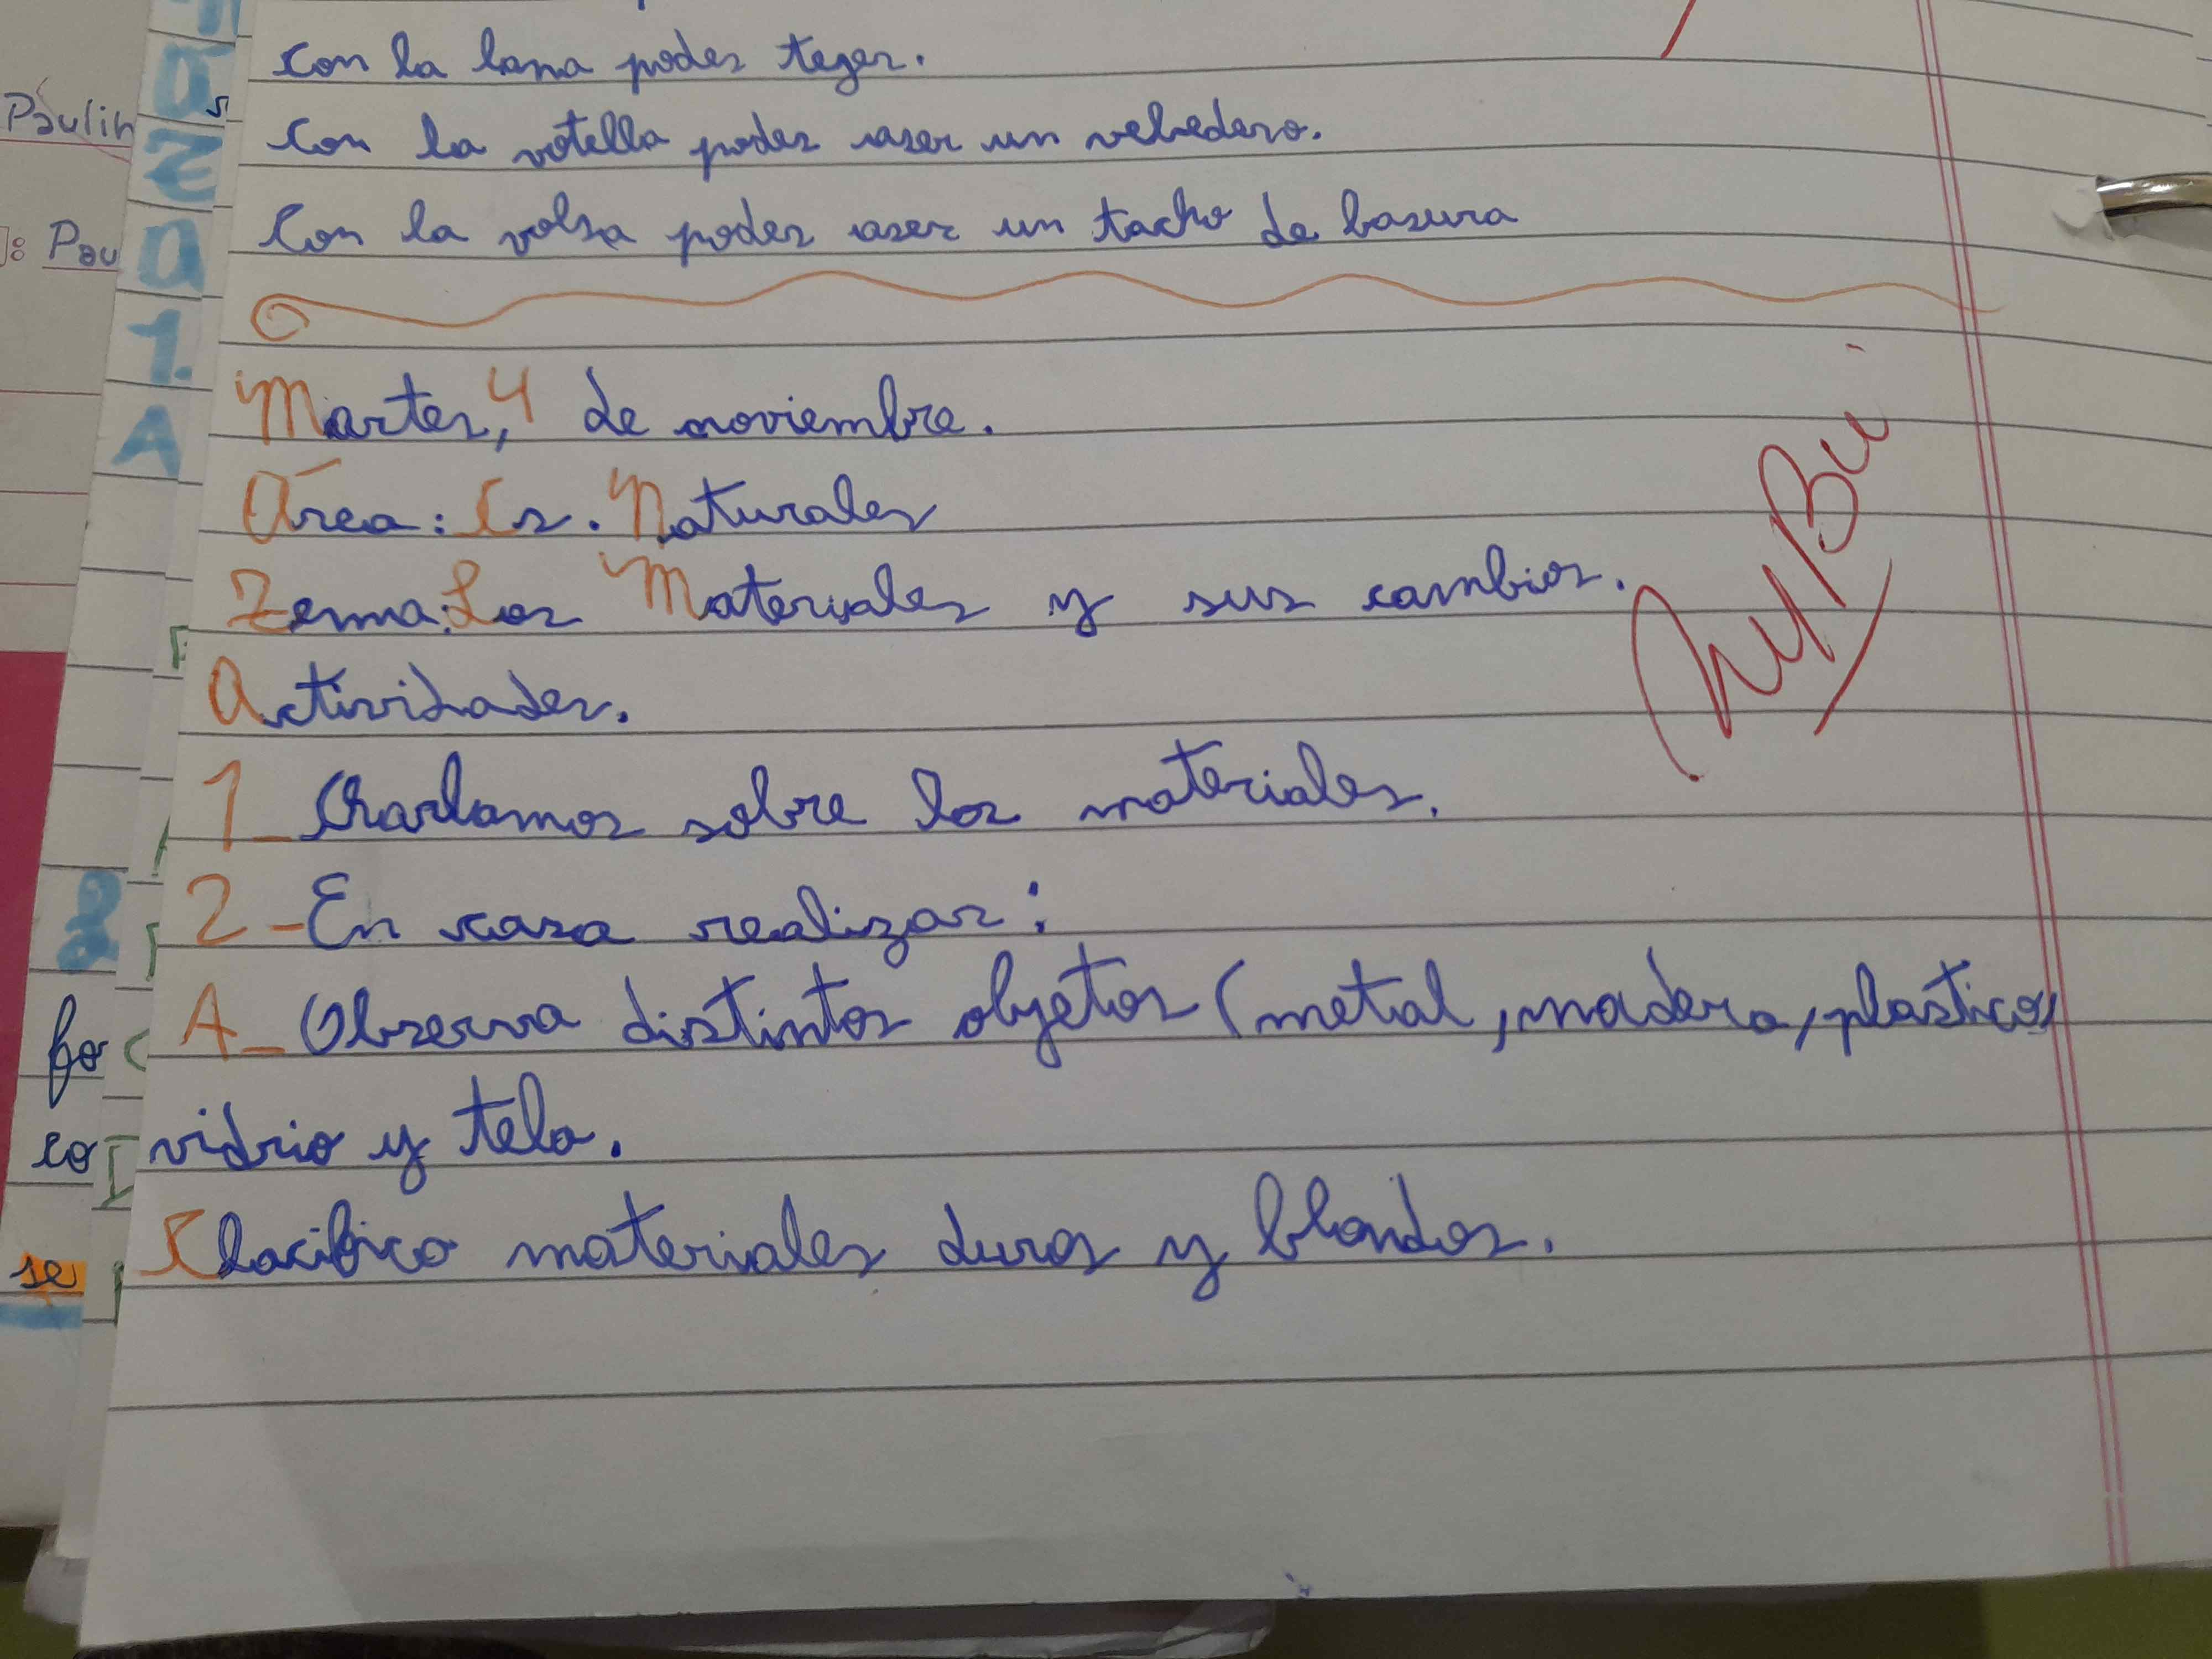 con la lana podes teger.
con la votella podes aser un vebedero.
Con la volsa podes aser un tacho de basura
Martes, 4 de noviembre.
Área: Cs. Naturales
Tema: Los Materiales y sus cambios.
Actividades.
1_ Charlamos sobre los materiales.
2-En casa realizar:
A_ Observa distintos objetos (metal, madera, plastico,
vidrio y tela.
Clacifico materiales duros y blandos.
Muy Bien
Paulin
Pau
1.
A
fo
co
se